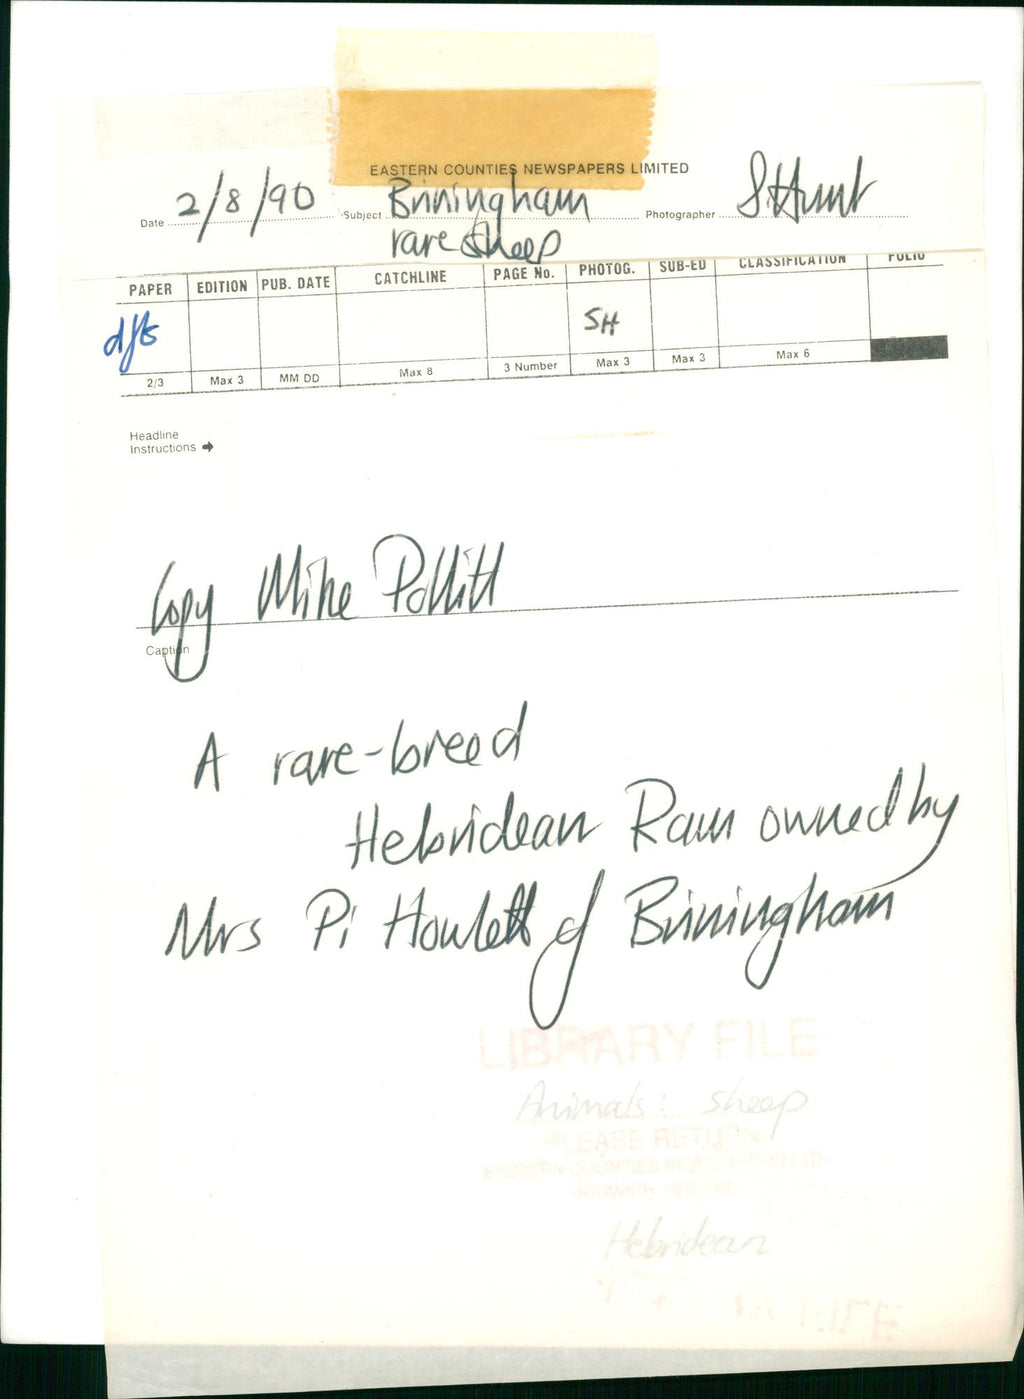 EASTERN COUNTIES NEWSPAPERS LIMITED
Date 2/8/90 Subject Briningham Photographer S. Hunt
rare sheep
PAPER EDITION PUB. DATE CATCHLINE PAGE No. PHOTOG. SUB-ED CLASSIFICATION FOLIO
SH
2/3 Max 3 MM DD Max 8 3 Number Max 3 Max 3 Max 6
Headline
Instructions →
Copy Mike Pollitt
Caption
A rare-breed
Hebridean Ram owned by
Mrs Pi Howlett of Briningham
LIBRARY FILE
Animals: sheep
PLEASE RETURN
EASTERN COUNTIES
Hebridean
FILE